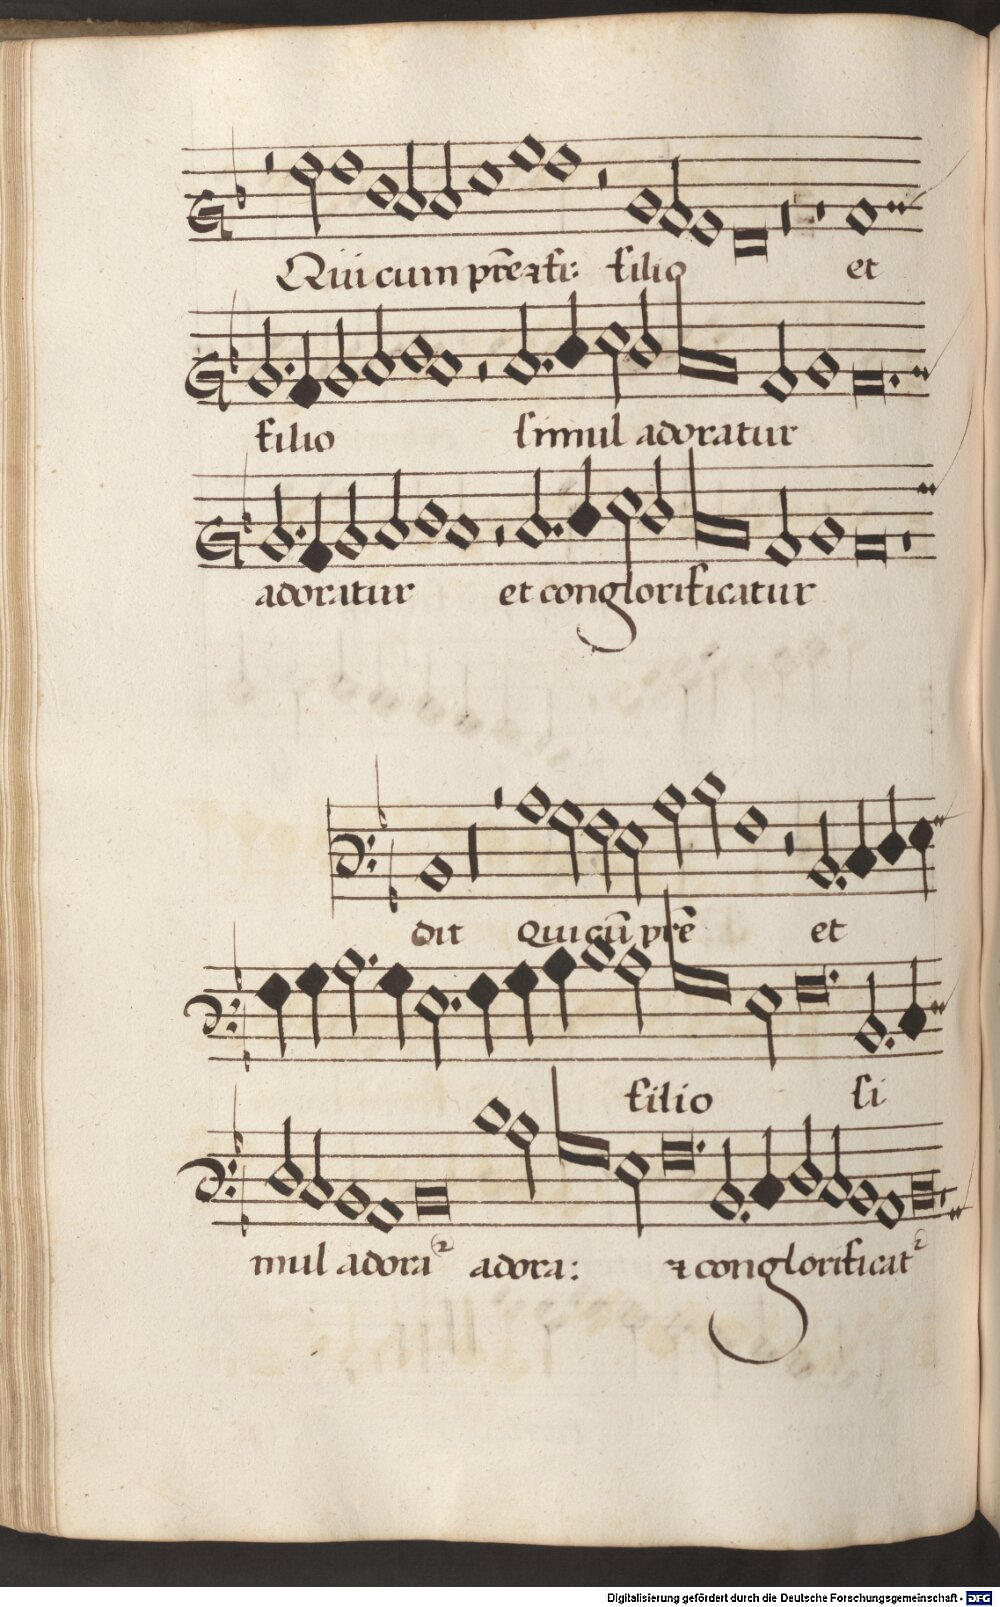 Qui cum pr̄e ⁊ fi: filio et
filio simul adoratur
adoratur et conglorificatur
dit Qui cū pr̄e et
filio si
mul adora² adora: ⁊ conglorificat²
Digitalisierung gefördert durch die Deutsche Forschungsgemeinschaft - DFG